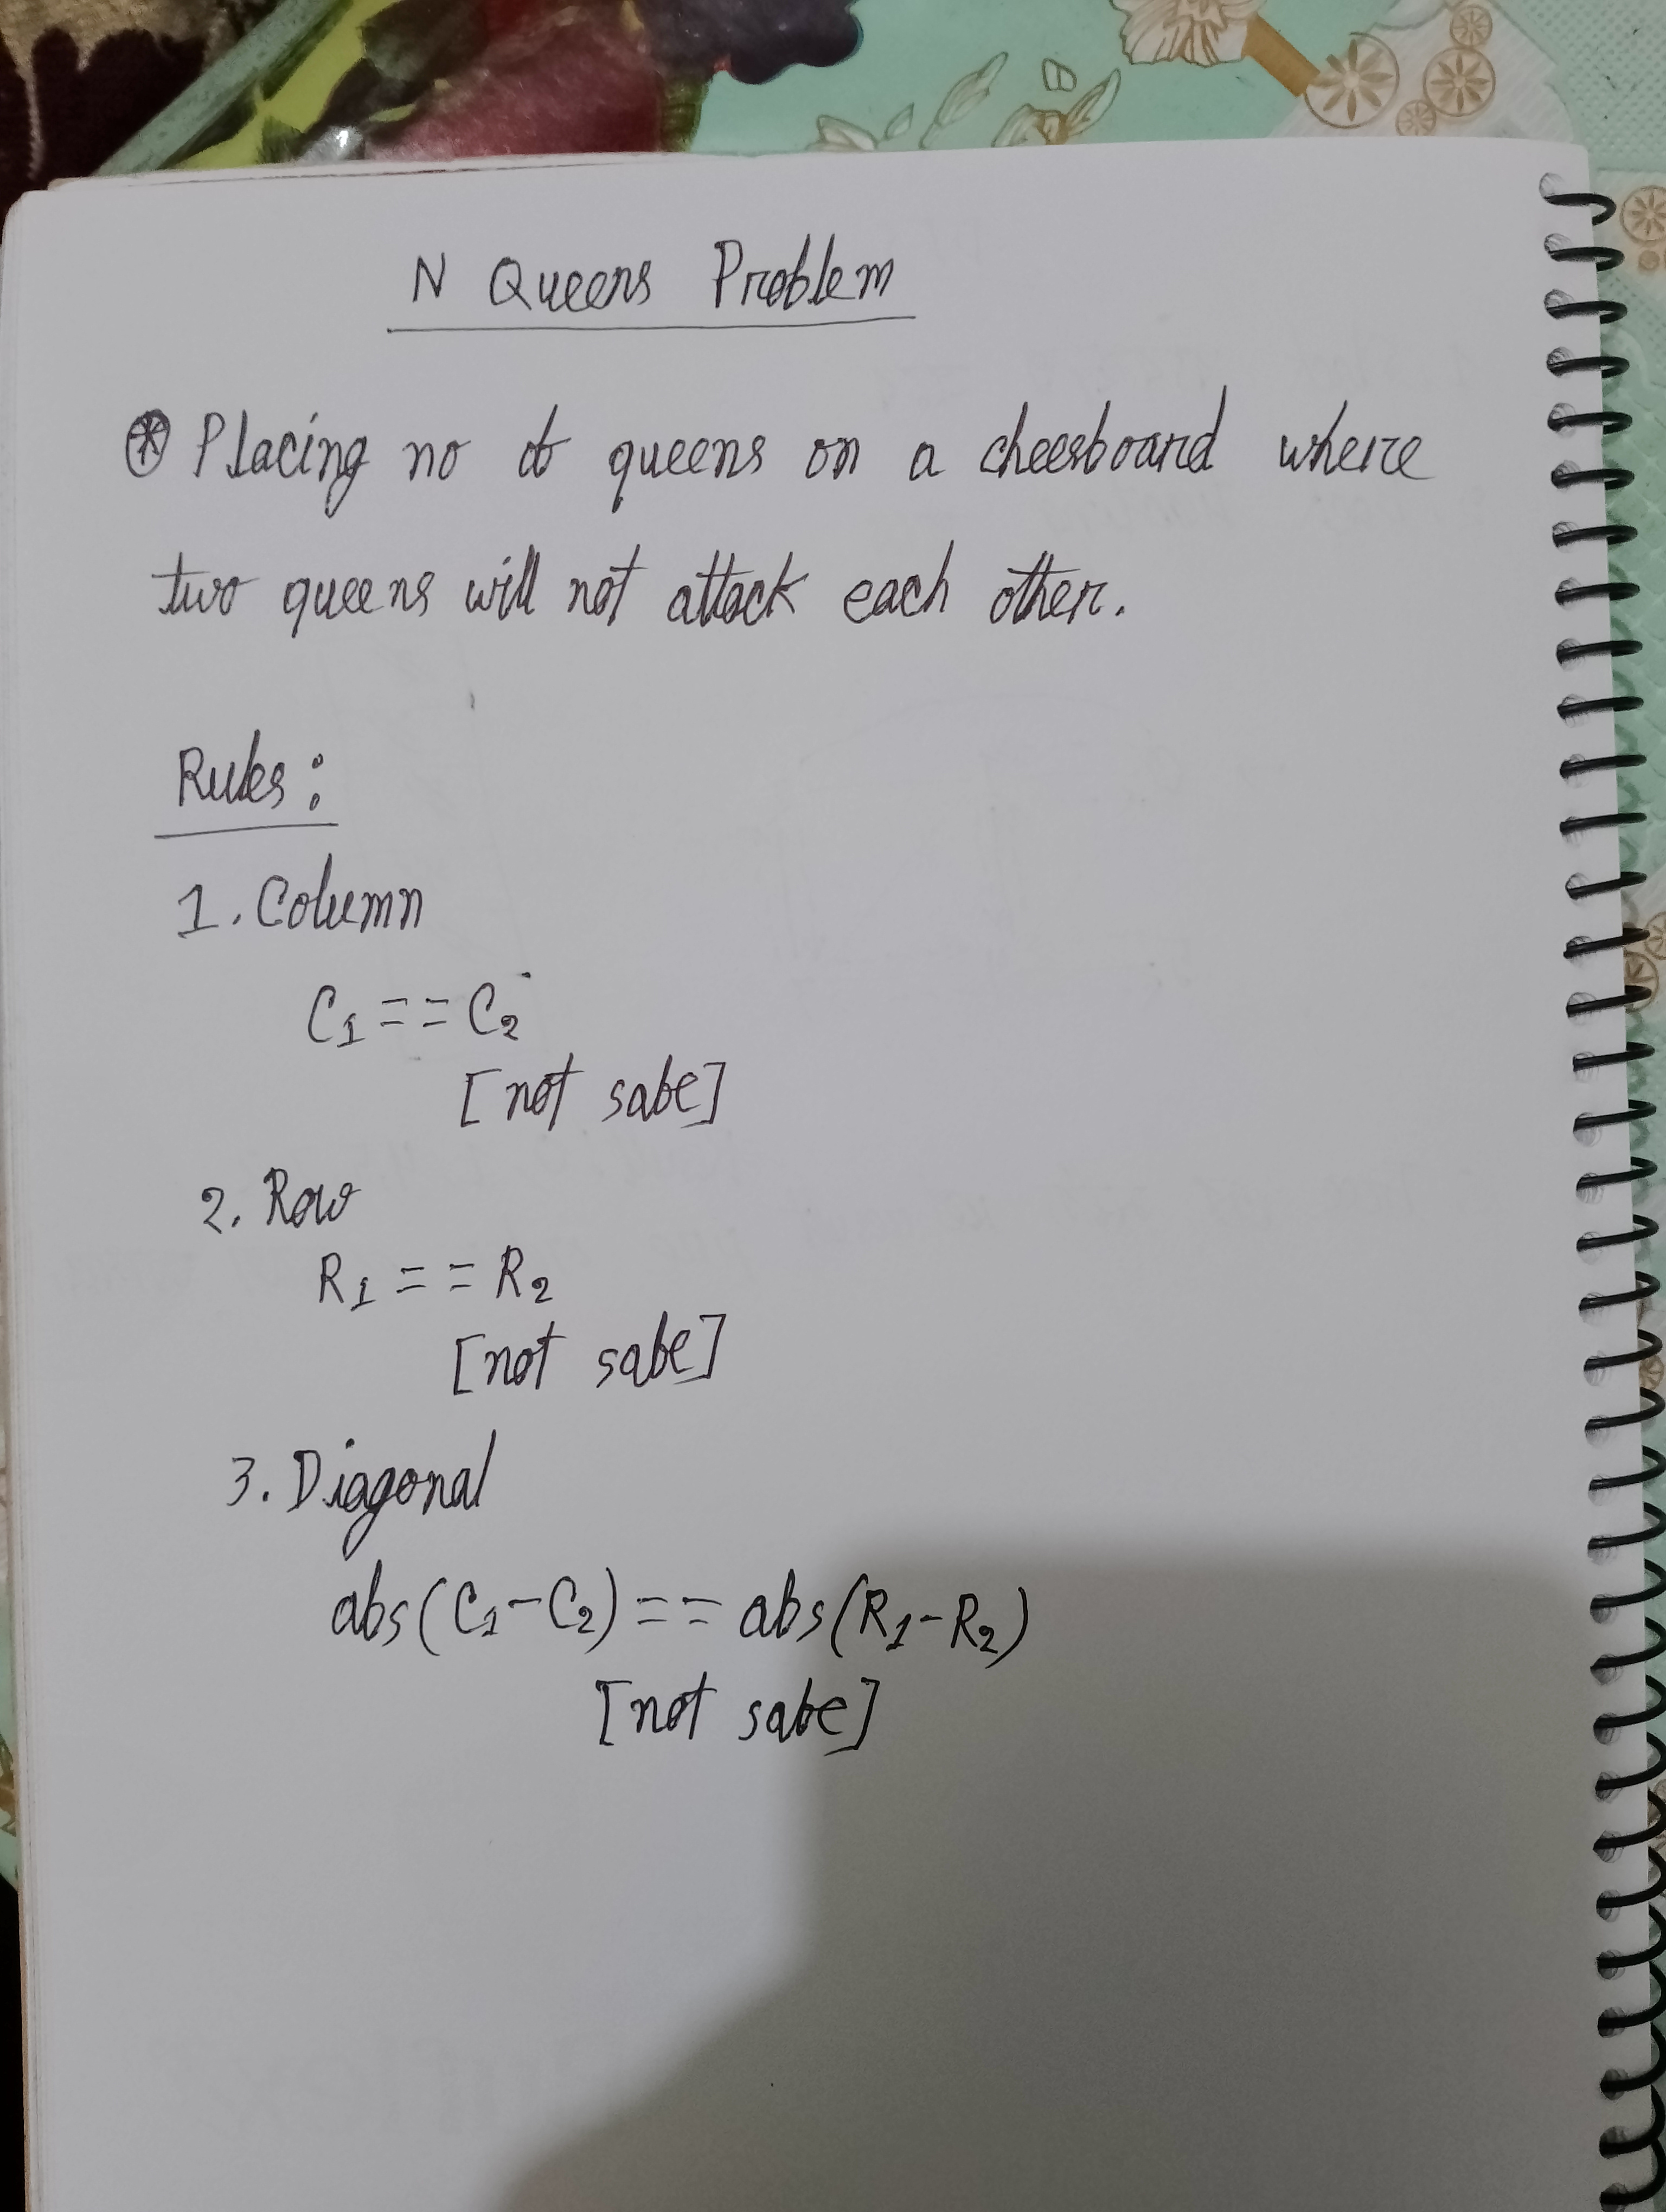 N Queens Problem
⊛ Placing no of queens on a cheesboard where
two queens will not attack each other.
Rules:
1. Column
C₁ == C₂
[not safe]
2. Row
R₁ == R₂
[not safe]
3. Diagonal
abs(C₁-C₂) == abs(R₁-R₂)
[not safe]